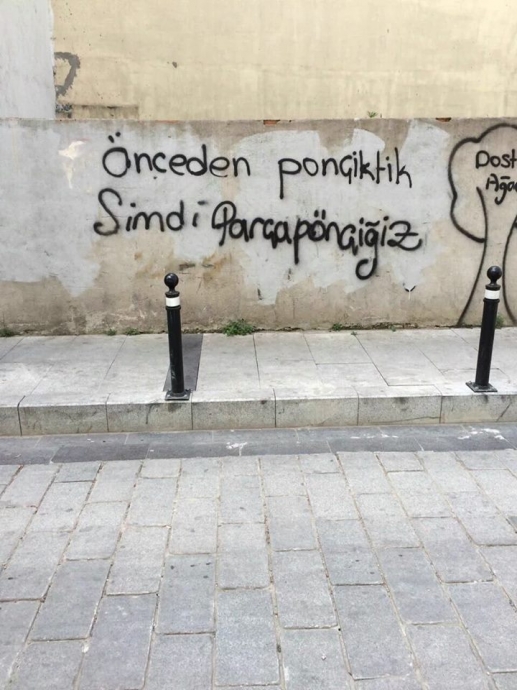 Önçeden ponçiktik
Simdi Parçapönçiğiz
Dost
Ağac